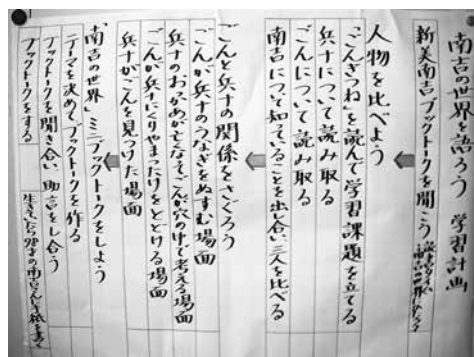 南吉の世界を語ろう 学習計画
新美南吉ブックトークを聞こう
人物を比べよう
「ごんぎつね」を読んで学習課題を立てる
兵十について読み取る
ごんについて読み取る
南吉について知っていることを出し合い、三人を比べる
ごんと兵十の関係をさぐろう
ごんが兵十のうなぎをぬすむ場面
兵十のおっかあがなくなってごんが穴の中で考える場面
ごんが兵十にくりやまつたけをとどける場面
兵十がごんを見つけた場面
「南吉の世界」ミニブックトークをしよう
テーマを決めてブックトークを作る
ブックトークを聞き合い、助言をし合う
ブックトークをする
生きていたら98才の南吉さんに手紙を書く